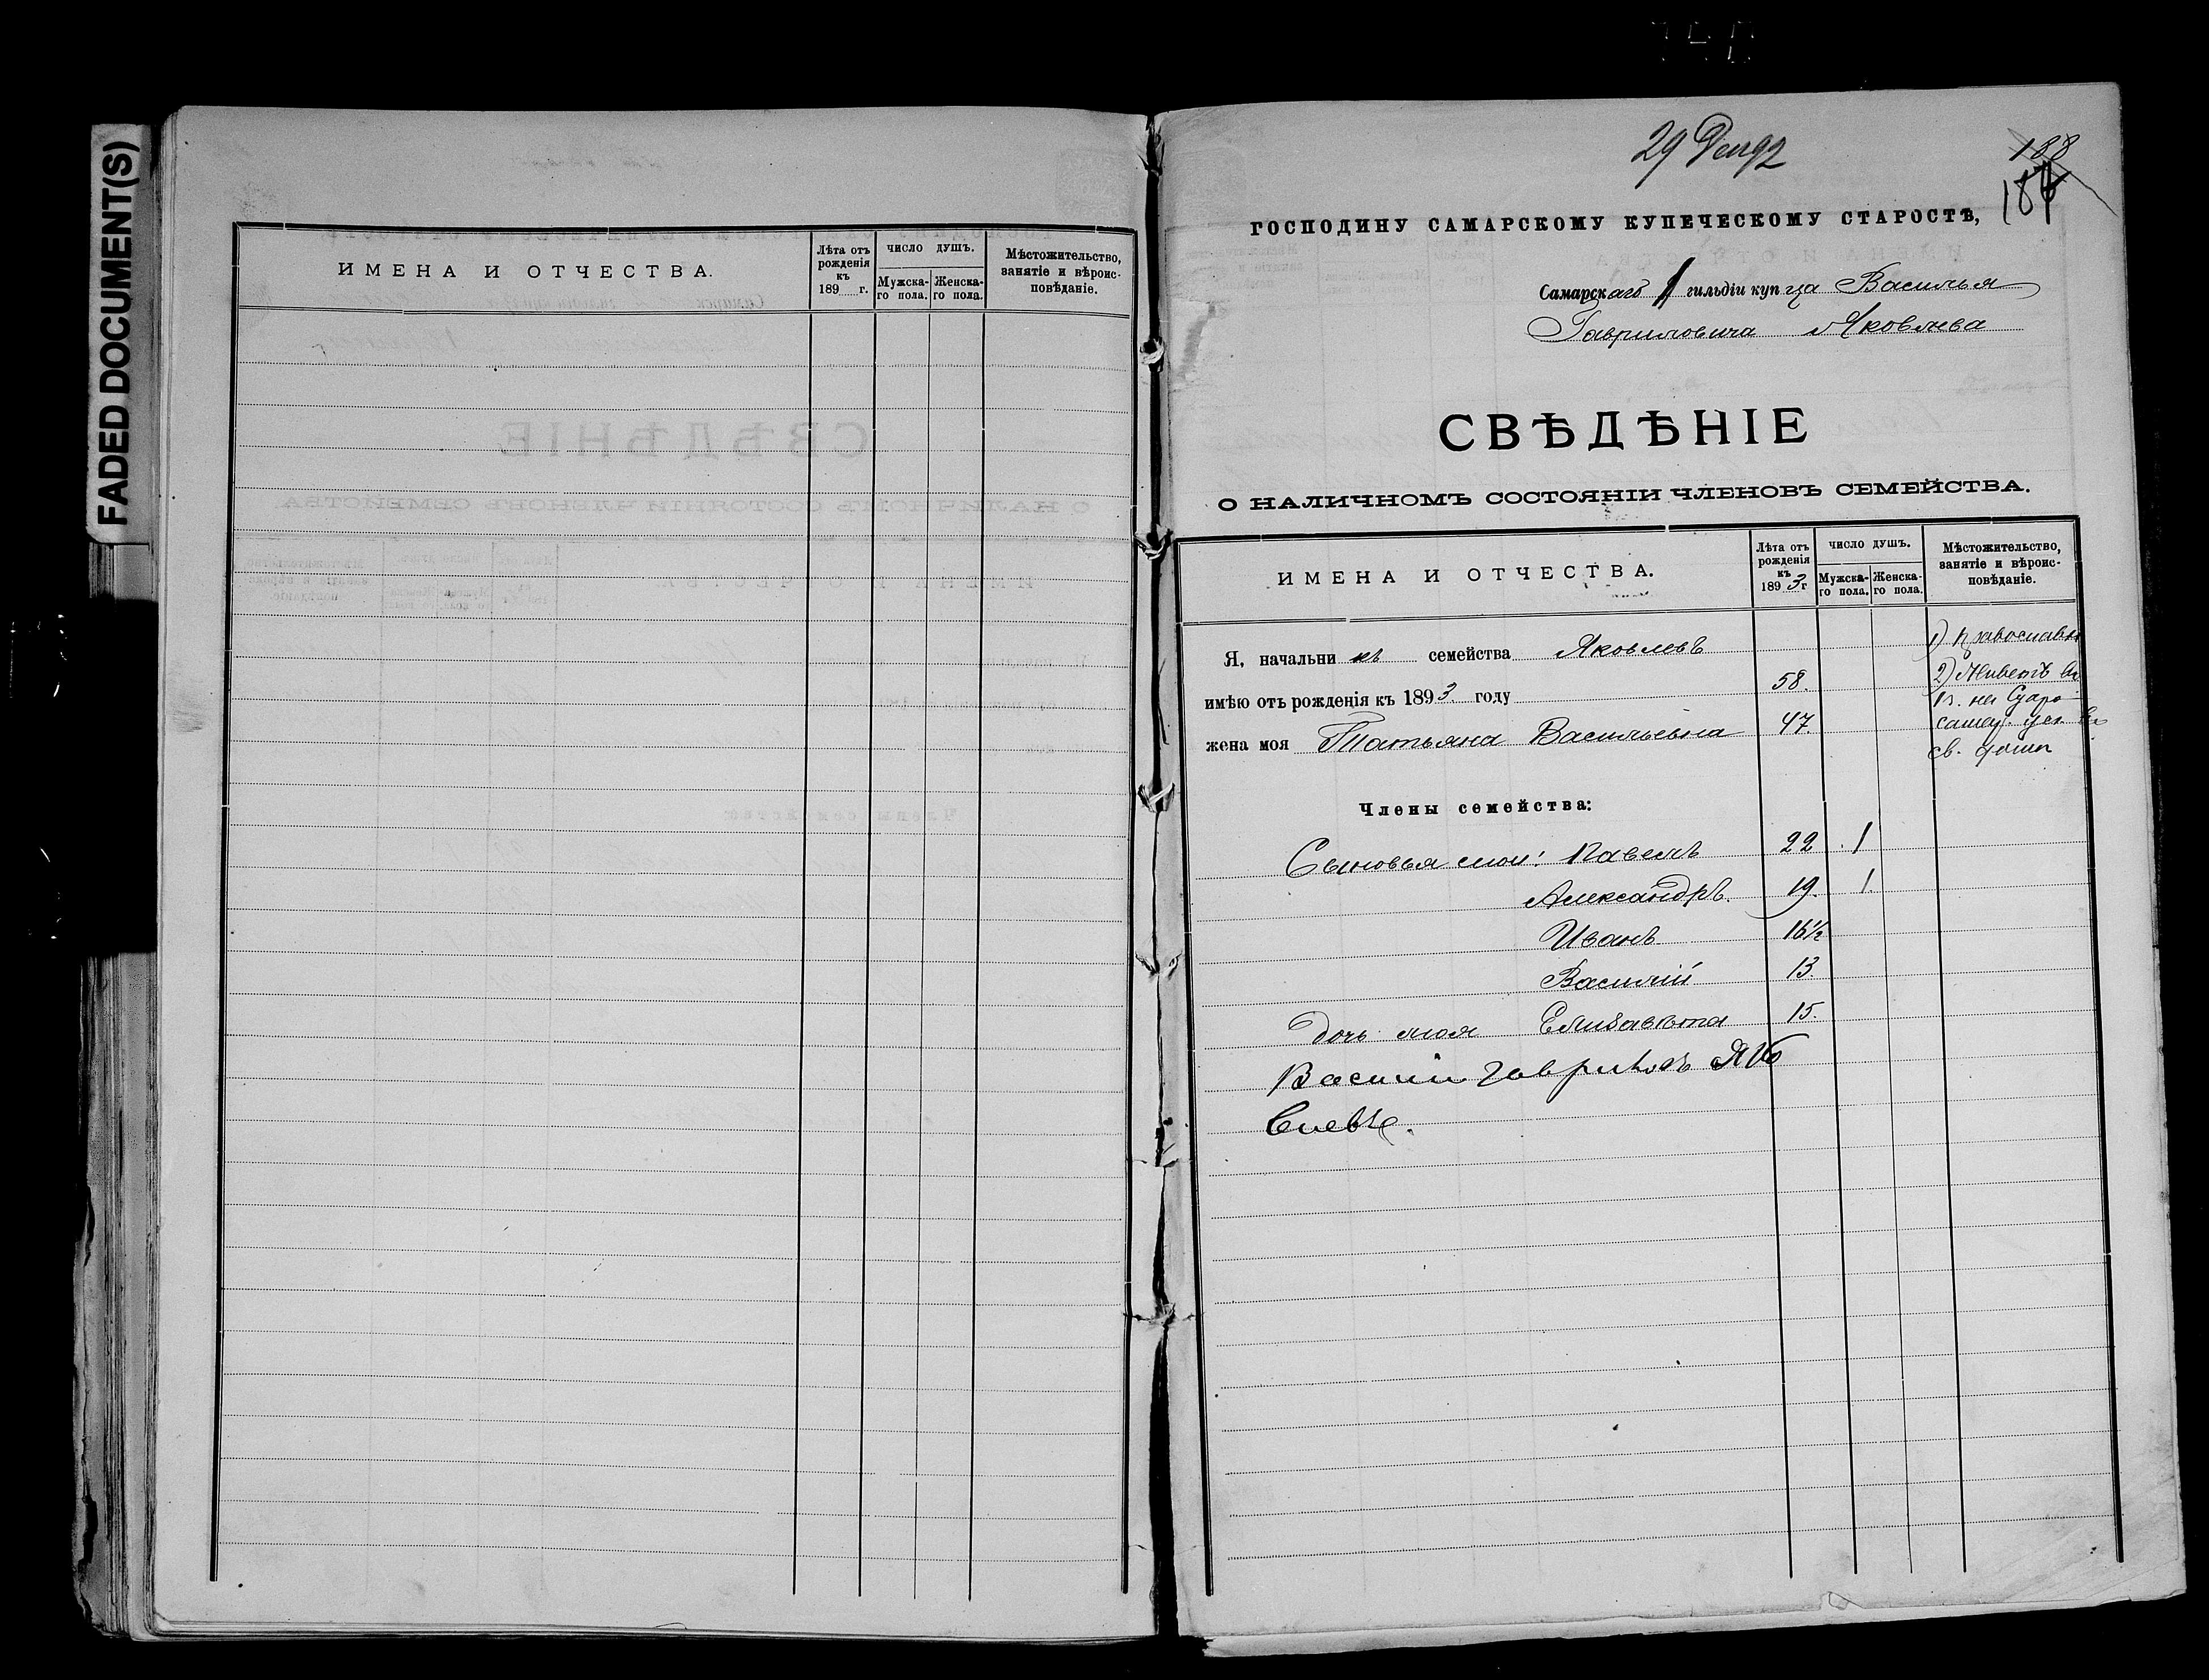 FADED DOCUMENT(S)
ИМЕНА И ОТЧЕСТВА.
Лѣта отъ рожденія къ 189 г.
ЧИСЛО ДУШЪ.
Мужска-го пола.
Женска-го пола.
Мѣстожительство, занятіе и вѣроис-повѣданіе.
29 Дек 92
188
187
ГОСПОДИНУ САМАРСКОМУ КУПЕЧЕСКОМУ СТАРОСТѢ,
Самарскаго 1 гильдіи купца Василья
Гавриловича Яковлева
СВѢДѢНІЕ
О НАЛИЧНОМЪ СОСТОЯНІИ ЧЛЕНОВЪ СЕМЕЙСТВА.
ИМЕНА И ОТЧЕСТВА.
Лѣта отъ рожденія къ 1893 г
ЧИСЛО ДУШЪ.
Мужска-го пола.
Женска-го пола.
Мѣстожительство, занятіе и вѣроис-повѣданіе.
Я, начальникъ семейства Яковлевъ
имѣю отъ рожденія къ 1893 году 58.
жена моя Татьяна Васильевна 47.
1) Православн
2) Живетъ въ
на Старо
св. домѣ
Члены семейства:
Сыновья мои: Павелъ 22 1
Александръ. 19. 1.
Иванъ 16½
Василій 13
дочь моя Елизавета 15.
Василий Гавриловъ Яко
влевъ.